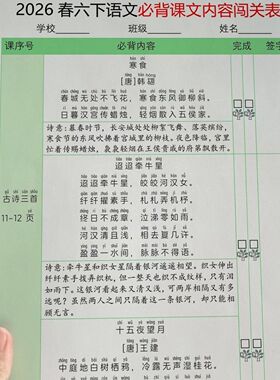 2026春六下语文必背课文内容闯关表
学校 班级 姓名
课序号 必背内容 完成 签字
寒食
[唐]韩翃
春城无处不飞花，寒食东风御柳斜。
日暮汉宫传蜡烛，轻烟散入五侯家。
诗意：暮春时节，长安城处处柳絮飞舞、落英缤纷，
寒食节的东风吹拂着宫城里的柳枝。夜色降临，宫里
忙着传赐蜡烛，袅袅轻烟在王侯贵戚的府第飘散开。
古诗三首
11-12 页
迢迢牵牛星
迢迢牵牛星，皎皎河汉女。
纤纤擢素手，札札弄机杼。
终日不成章，泣涕零如雨。
河汉清且浅，相去复几许。
盈盈一水间，脉脉不得语。
诗意：牵牛星和织女星隔着银河遥遥相望。织女伸出
纤纤素手拨弄织机，但一整天也织不成纹样，只有泪如
雨下。这银河看起来又清又浅，可两岸相隔又有多
远呢？虽然两人之间只隔着这一条银河，却也只能相
顾无言。
十五夜望月
[唐]王建
中庭地白树栖鸦，冷露无声湿桂花。